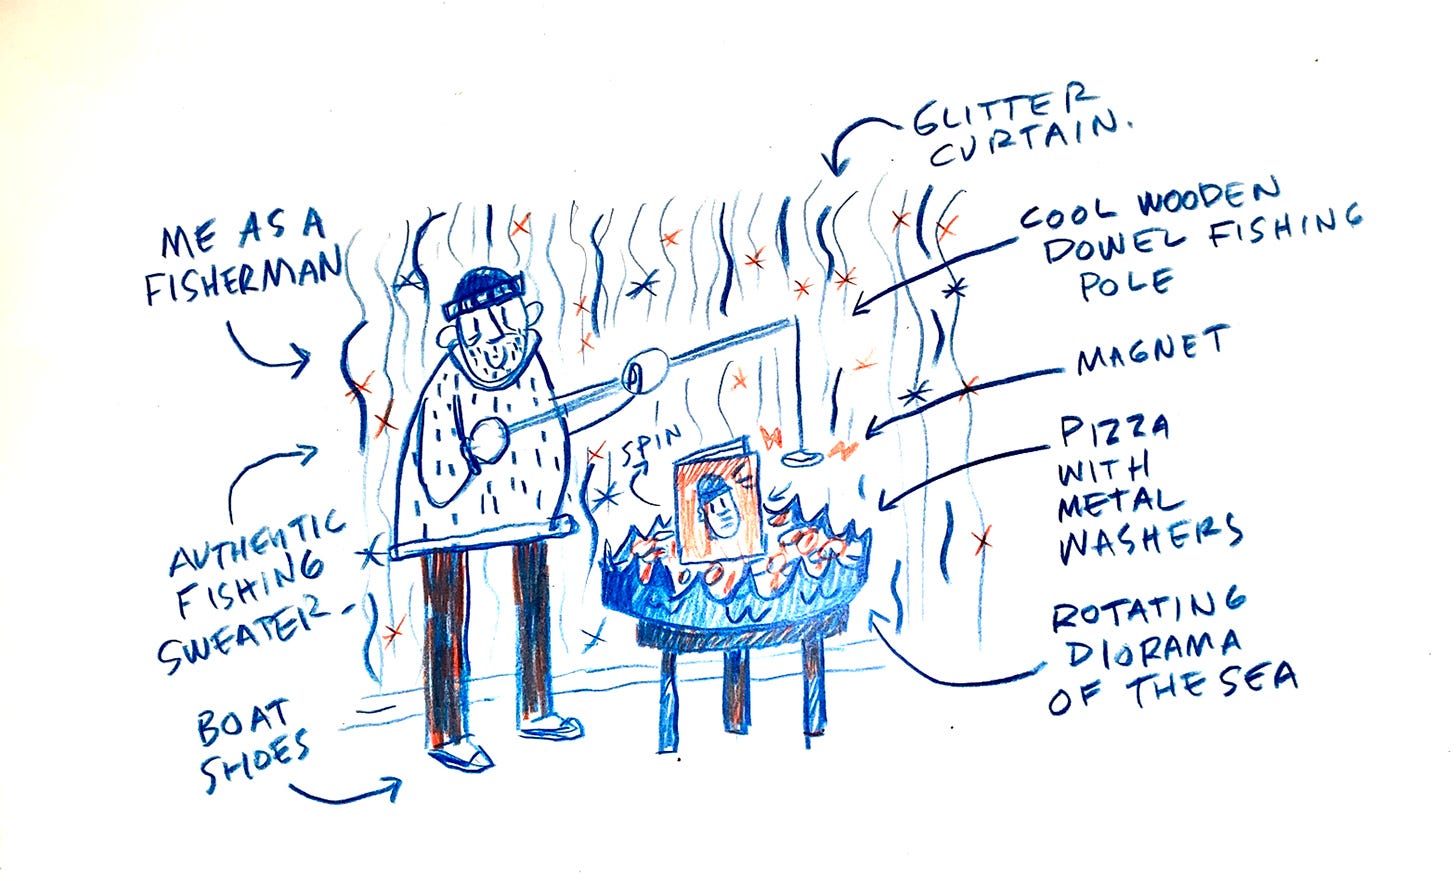 GLITTER
CURTAIN.
COOL WOODEN
DOWEL FISHING
POLE
MAGNET
PIZZA
WITH
METAL
WASHERS
ROTATING
DIORAMA
OF THE SEA
ME AS A
FISHERMAN
AUTHENTIC
FISHING
SWEATER-
BOAT
SHOES
SPIN